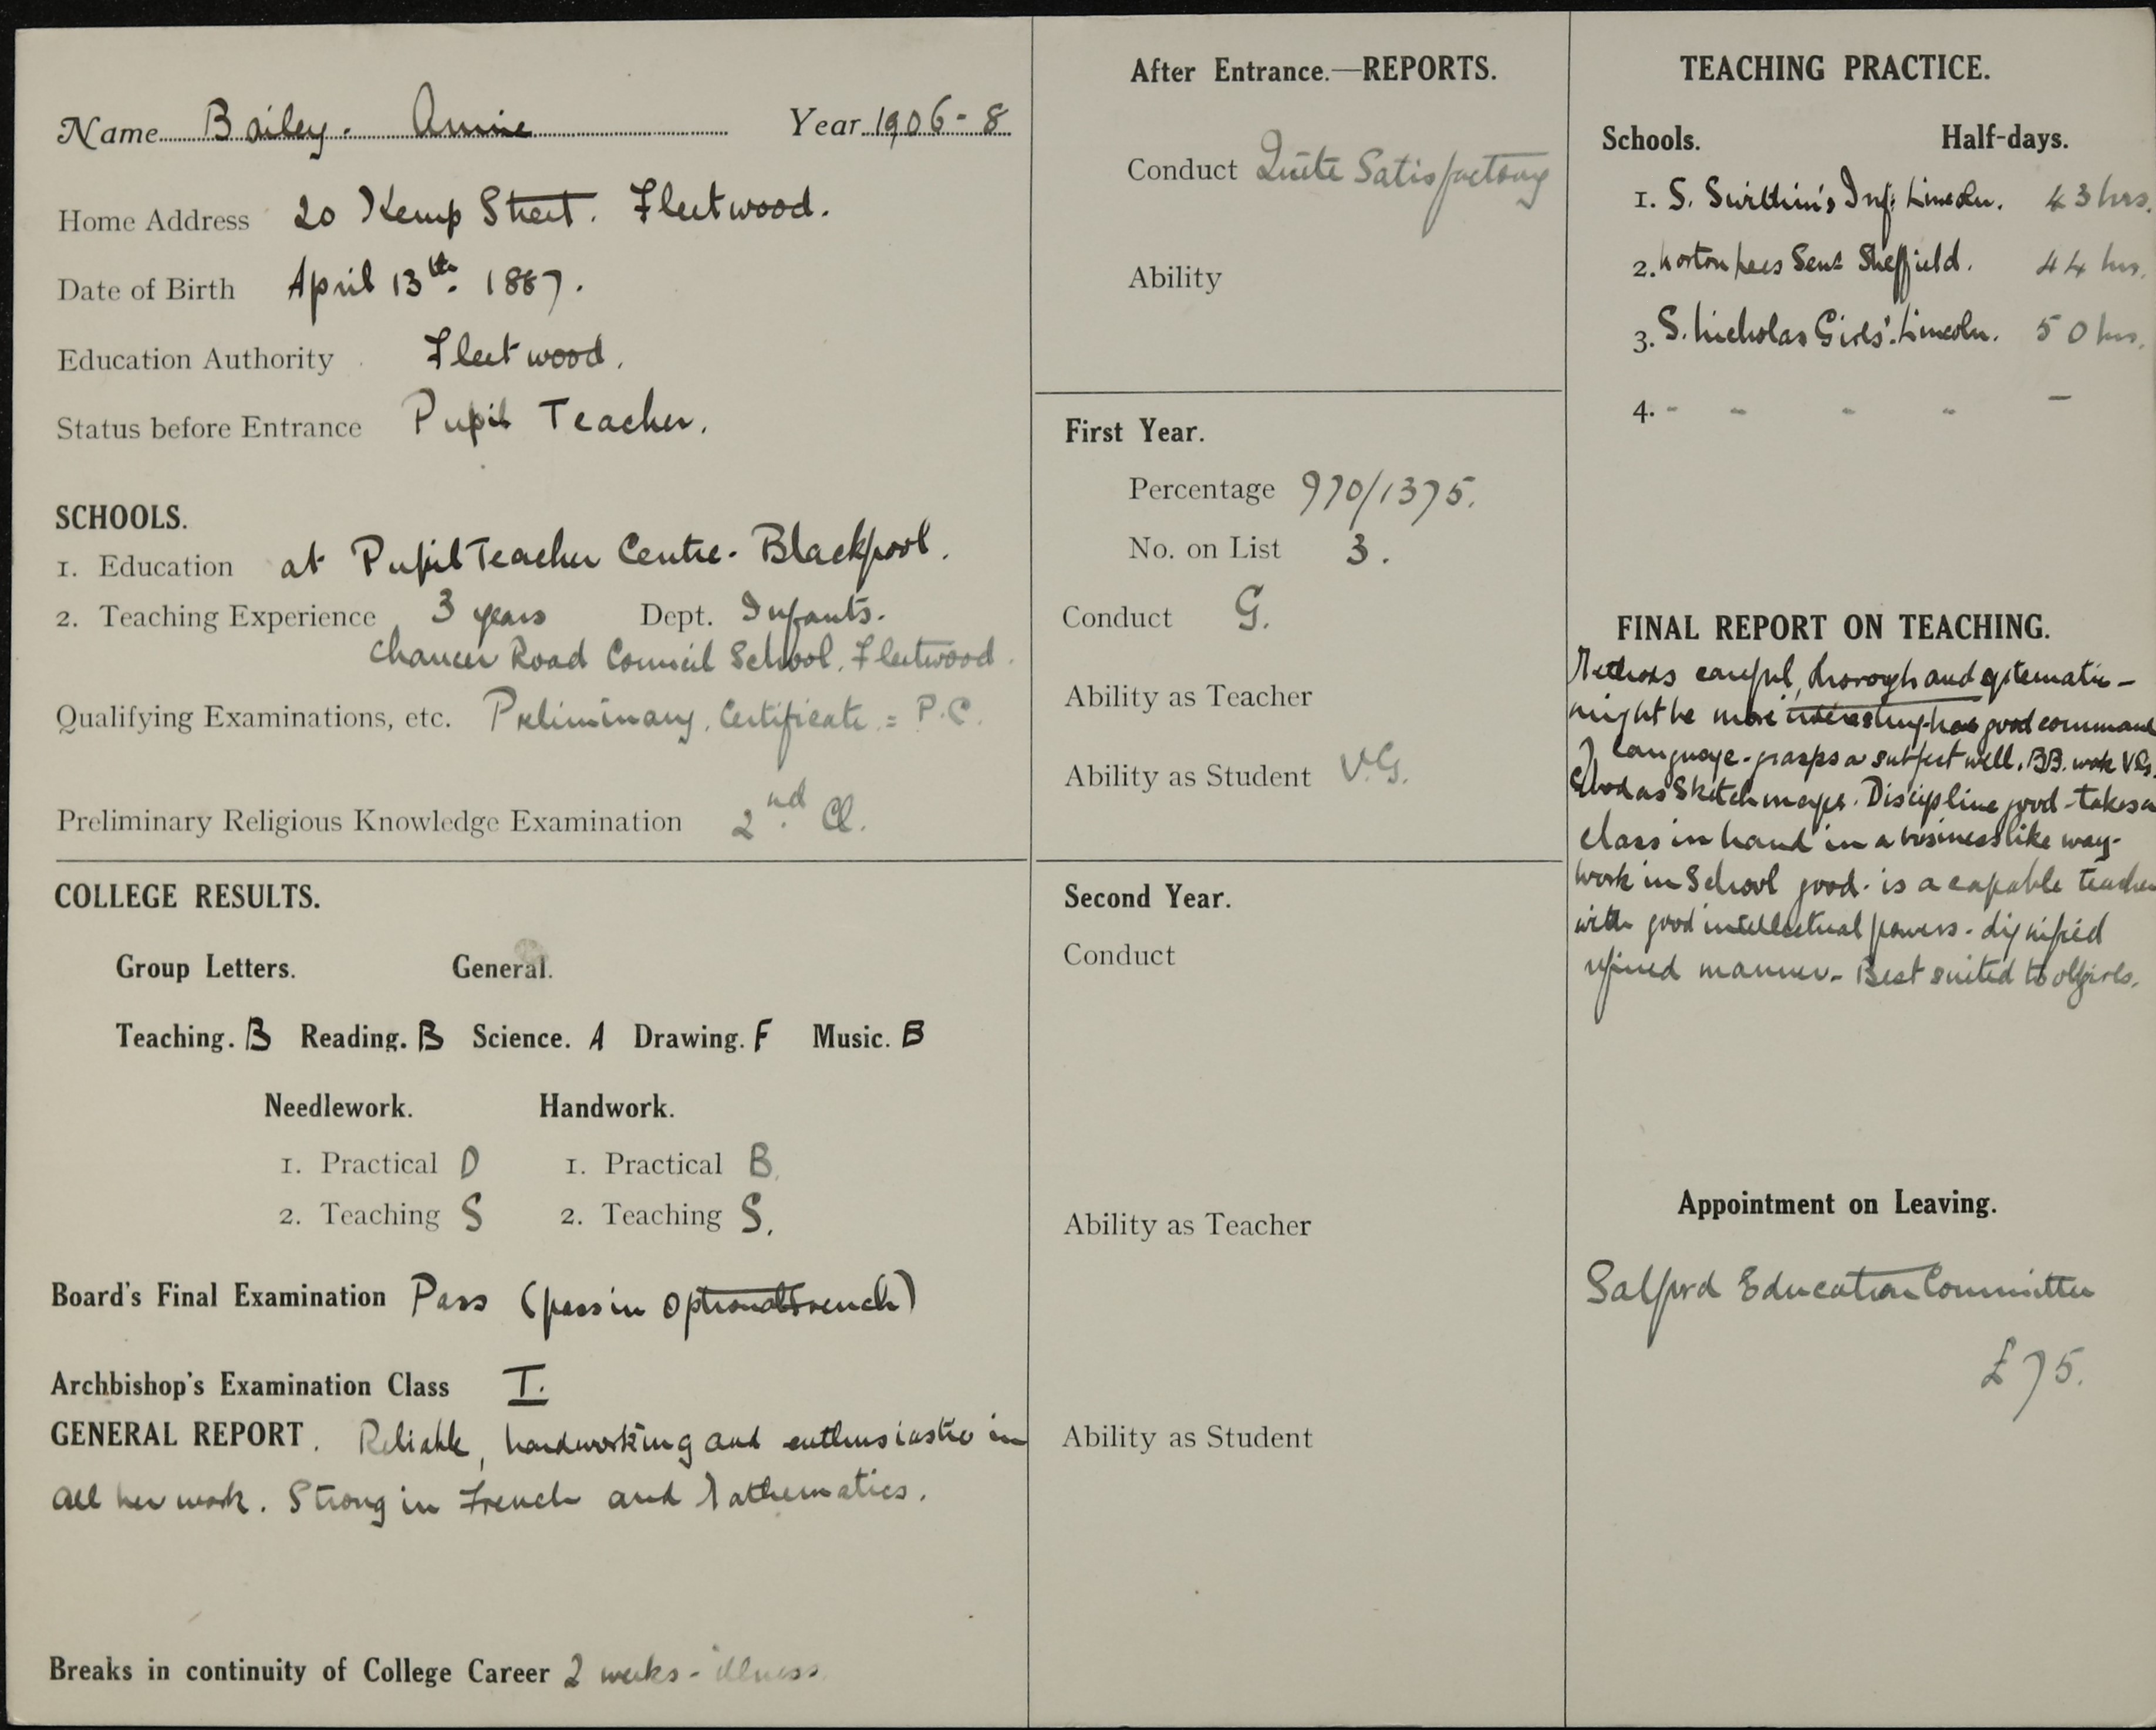 Name Bailey. Annie Year 1906-8
Home Address 20 Kemp Street. Fleetwood.
Date of Birth April 13th. 1887.
Education Authority Fleetwood.
Status before Entrance Pupil Teacher.
SCHOOLS.
1. Education at Pupil Teacher Centre. Blackpool.
2. Teaching Experience 3 years Dept. Infants.
Chaucer Road Council School. Fleetwood.
Qualifying Examinations, etc. Preliminary. Certificate. = P.C.
Preliminary Religious Knowledge Examination 2nd. Cl.
COLLEGE RESULTS.
Group Letters. General.
Teaching. B Reading. B Science. A Drawing. F Music. B
Needlework. Handwork.
1. Practical D 1. Practical B.
2. Teaching S 2. Teaching S.
Board's Final Examination Pass (pass in Optional French)
Archbishop's Examination Class I.
GENERAL REPORT. Reliable, hardworking and enthusiastic in
all her work. Strong in French and Mathematics.
Breaks in continuity of College Career 2 weeks - illness.
After Entrance.—REPORTS.
Conduct Quite Satisfactory
Ability
First Year.
Percentage 970/1375.
No. on List 3.
Conduct G.
Ability as Teacher
Ability as Student V.G.
Second Year.
Conduct
Ability as Teacher
Ability as Student
TEACHING PRACTICE.
Schools. Half-days.
1. S. Swithin's Inf: Lincoln. 43 hrs.
2. Norton Lees Sheffield. 44 hrs.
3. S. Nicholas Girls'. Lincoln. 50 hrs.
4. - - - - -
FINAL REPORT ON TEACHING.
Methods careful, thorough and systematic -
might be more interesting - has good command
of language - grasps a subject well. BB. work V.G.
Sketch maps. Discipline good - takes a
class in hand in a businesslike way -
work in School good - is a capable teacher
with good intellectual powers - dignified
refined manner - Best suited to girls.
Appointment on Leaving.
Salford Education Committee
£75.